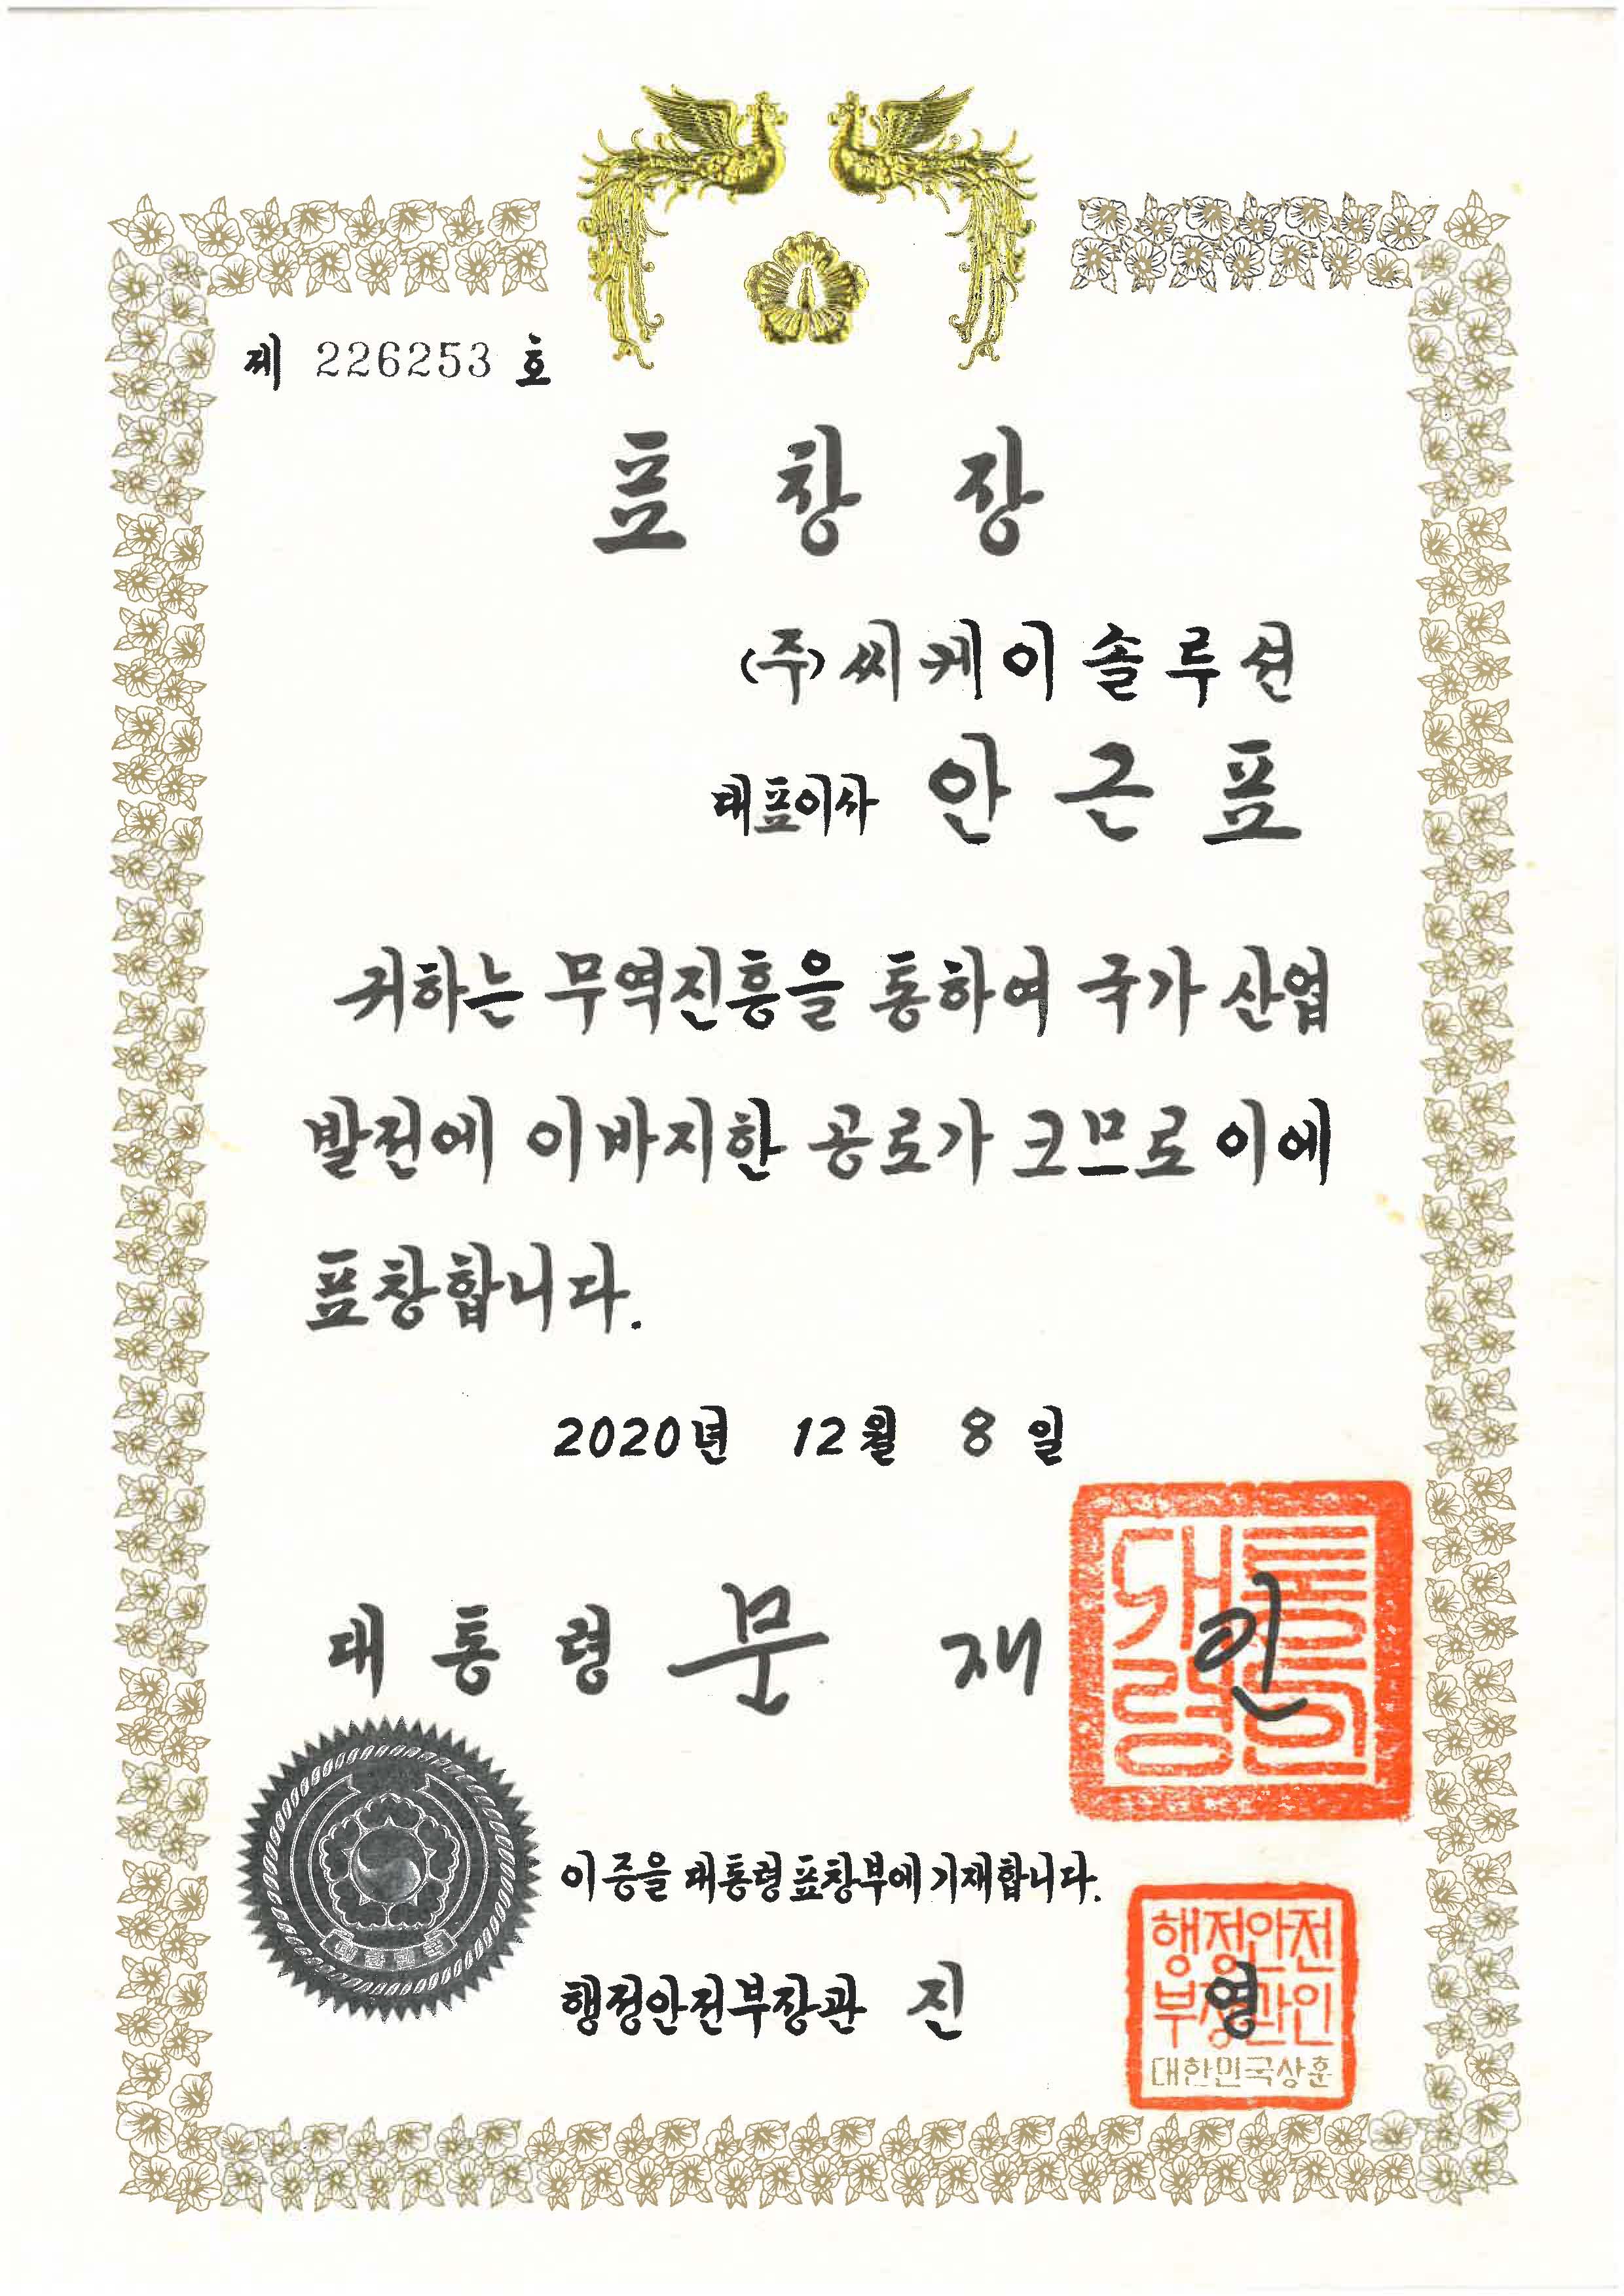 제 226253 호
표 창 장
(주)씨케이솔루션
대표이사 안 근 표
귀하는 무역진흥을 통하여 국가 산업
발전에 이바지한 공로가 크므로 이에
표창합니다.
2020년 12월 8일
대 통 령 문 재 인
대통령의인
이 증을 대통령표창부에 기재합니다.
행정안전부장관 진 영
행정안전
부장관인
대한민국상훈
대한민국